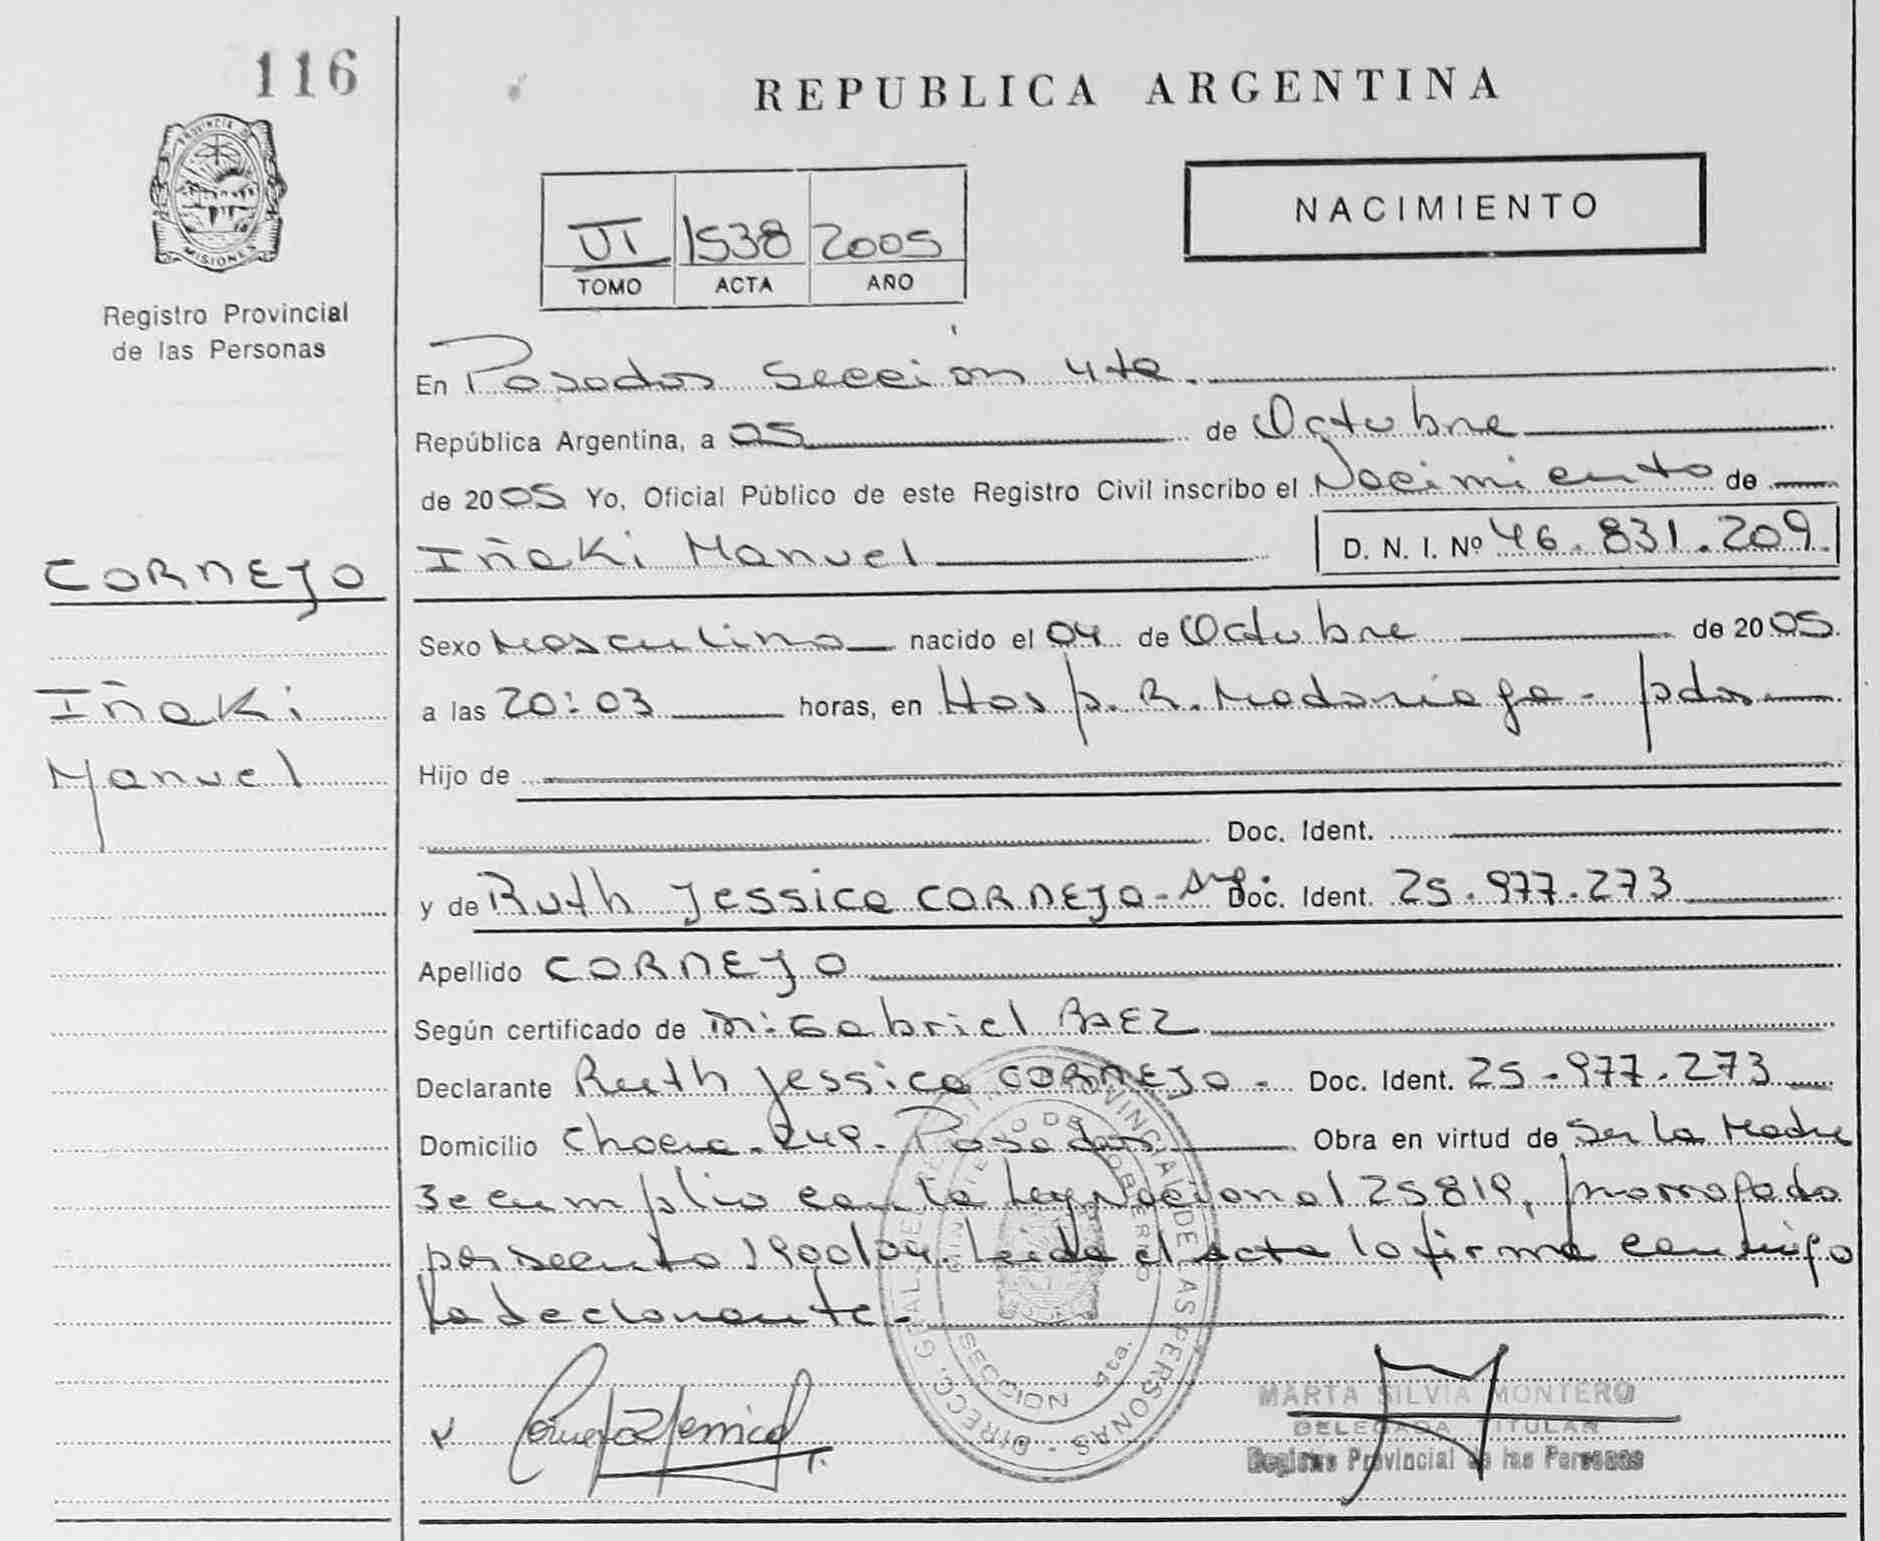 116
PROVINCIA D
MISIONES
Registro Provincial
de las Personas
CORNEJO
Iñaki
Manuel
REPUBLICA ARGENTINA
NACIMIENTO
VI 1538 2005
TOMO ACTA AÑO
En Posadas Sección 4ta.
República Argentina, a 05 de Octubre
de 2005 Yo, Oficial Público de este Registro Civil inscribo el Nacimiento de
Iñaki Manuel D. N. I. Nº 46.831.209
Sexo Masculino nacido el 04 de Octubre de 2005
a las 20:03 horas, en Hosp. R. Madariaga - pdas
Hijo de
Doc. Ident.
y de Ruth Jessica CORNEJO - Doc. Ident. 25.977.273
Apellido CORNEJO
Según certificado de Gabriel BAEZ
Declarante Ruth Jessica CORNEJO - Doc. Ident. 25.977.273
Domicilio Posadas Obra en virtud de Ser la Madre
Se cumplio con la Ley Nacional 25819, prorrogada
por decreto 1900/04. Leida el acta la firma conmigo
la declarante.
DIRECC. GRAL. DE REGISTRO PROVINCIAL DE LAS PERSONAS
MINISTERIO DE GOBIERNO
SECCION 4ta.
MARTA SILVIA MONTERO
DELEGADA TITULAR
Registro Provincial de las Personas